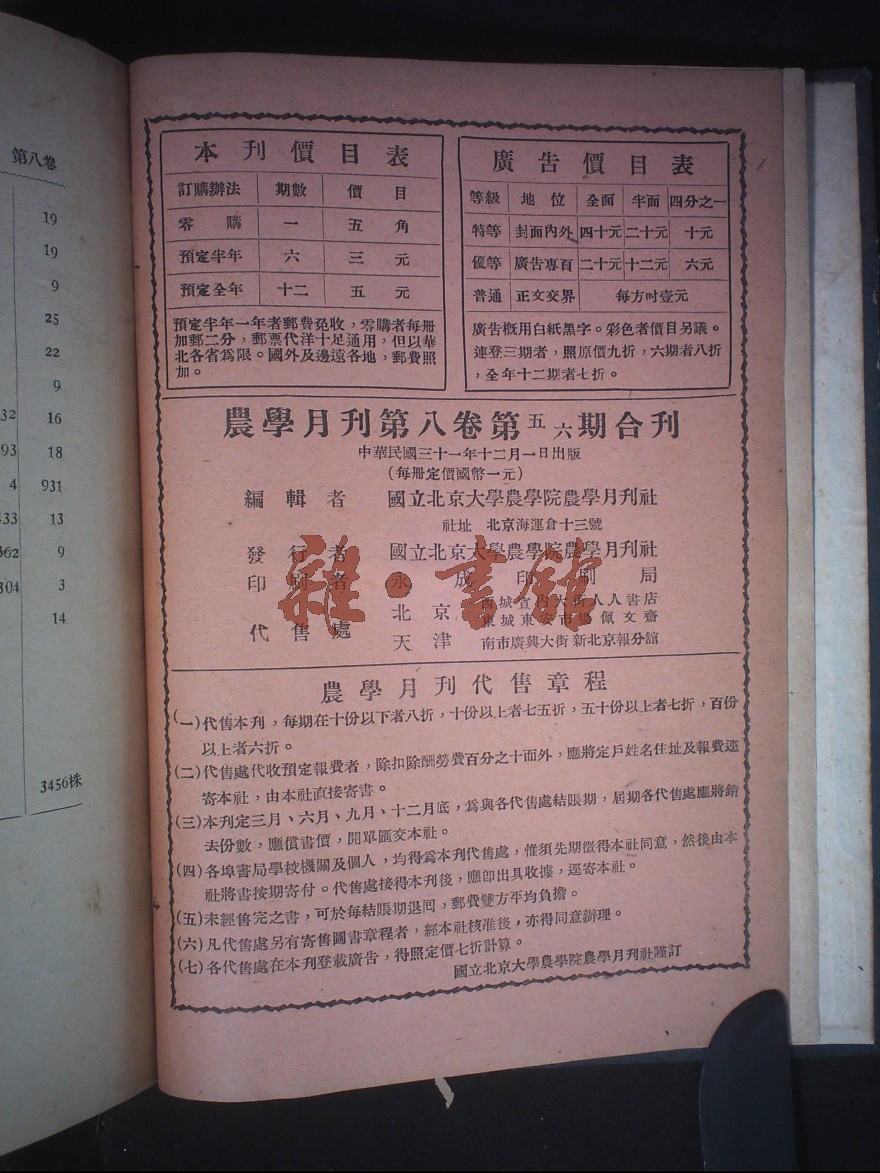 第八卷
19
19
9
25
22
9
32 16
93 18
4 931
433 13
362 9
304 3
14
3456株
本刊價目表
訂購辦法 期數 價目
零購 一 五角
預定半年 六 三元
預定全年 十二 五元
預定半年一年者郵費免收，零購者每册
加郵二分，郵票代洋十足通用，但以華
北各省爲限。國外及邊遠各地，郵費照
加。
廣告價目表
等級 地位 全面 半面 四分之一
特等 封面內外 四十元 二十元 十元
優等 廣告專頁 二十元 十二元 六元
普通 正文交界 每方吋壹元
廣告槪用白紙黑字。彩色者價目另議。
連登三期者，照原價九折，六期者八折
，全年十二期者七折。
農學月刊第八卷第五六期合刊
中華民國三十一年十二月一日出版
(每册定價國幣一元)
編輯者 國立北京大學農學院農學月刊社
社址 北京海運倉十三號
發行者 國立北京大學農學院農學月刊社
印刷者 永成印刷局
代售處 北京 西城宣內大街人人書店
東城東安市場佩文齋
天津 南市廣興大街新北京報分舘
雜·書館
農學月刊代售章程
(一)代售本刊，每期在十份以下者八折，十份以上者七五折，五十份以上者七折，百份
以上者六折。
(二)代售處代收預定報費者，除扣除酬勞費百分之十而外，應將定戶姓名住址及報費逕
寄本社，由本社直接寄書。
(三)本刊定三月、六月、九月、十二月底，爲與各代售處結賬期，屆期各代售處應將銷
去份數，應償書價，開單匯交本社。
(四)各埠書局學校機關及個人，均得爲本刊代售處，惟須先期徵得本社同意，然後由本
社將書按期寄付。代售處接得本刊後，應卽出具收據，逕寄本社。
(五)未經售完之書，可於每結賬期退囘，郵費雙方平均負擔。
(六)凡代售處另有寄售圖書章程者，經本社核准後，亦得同意辦理。
(七)各代售處在本刊登載廣告，得照定價七折計算。
國立北京大學農學院農學月刊社謹訂